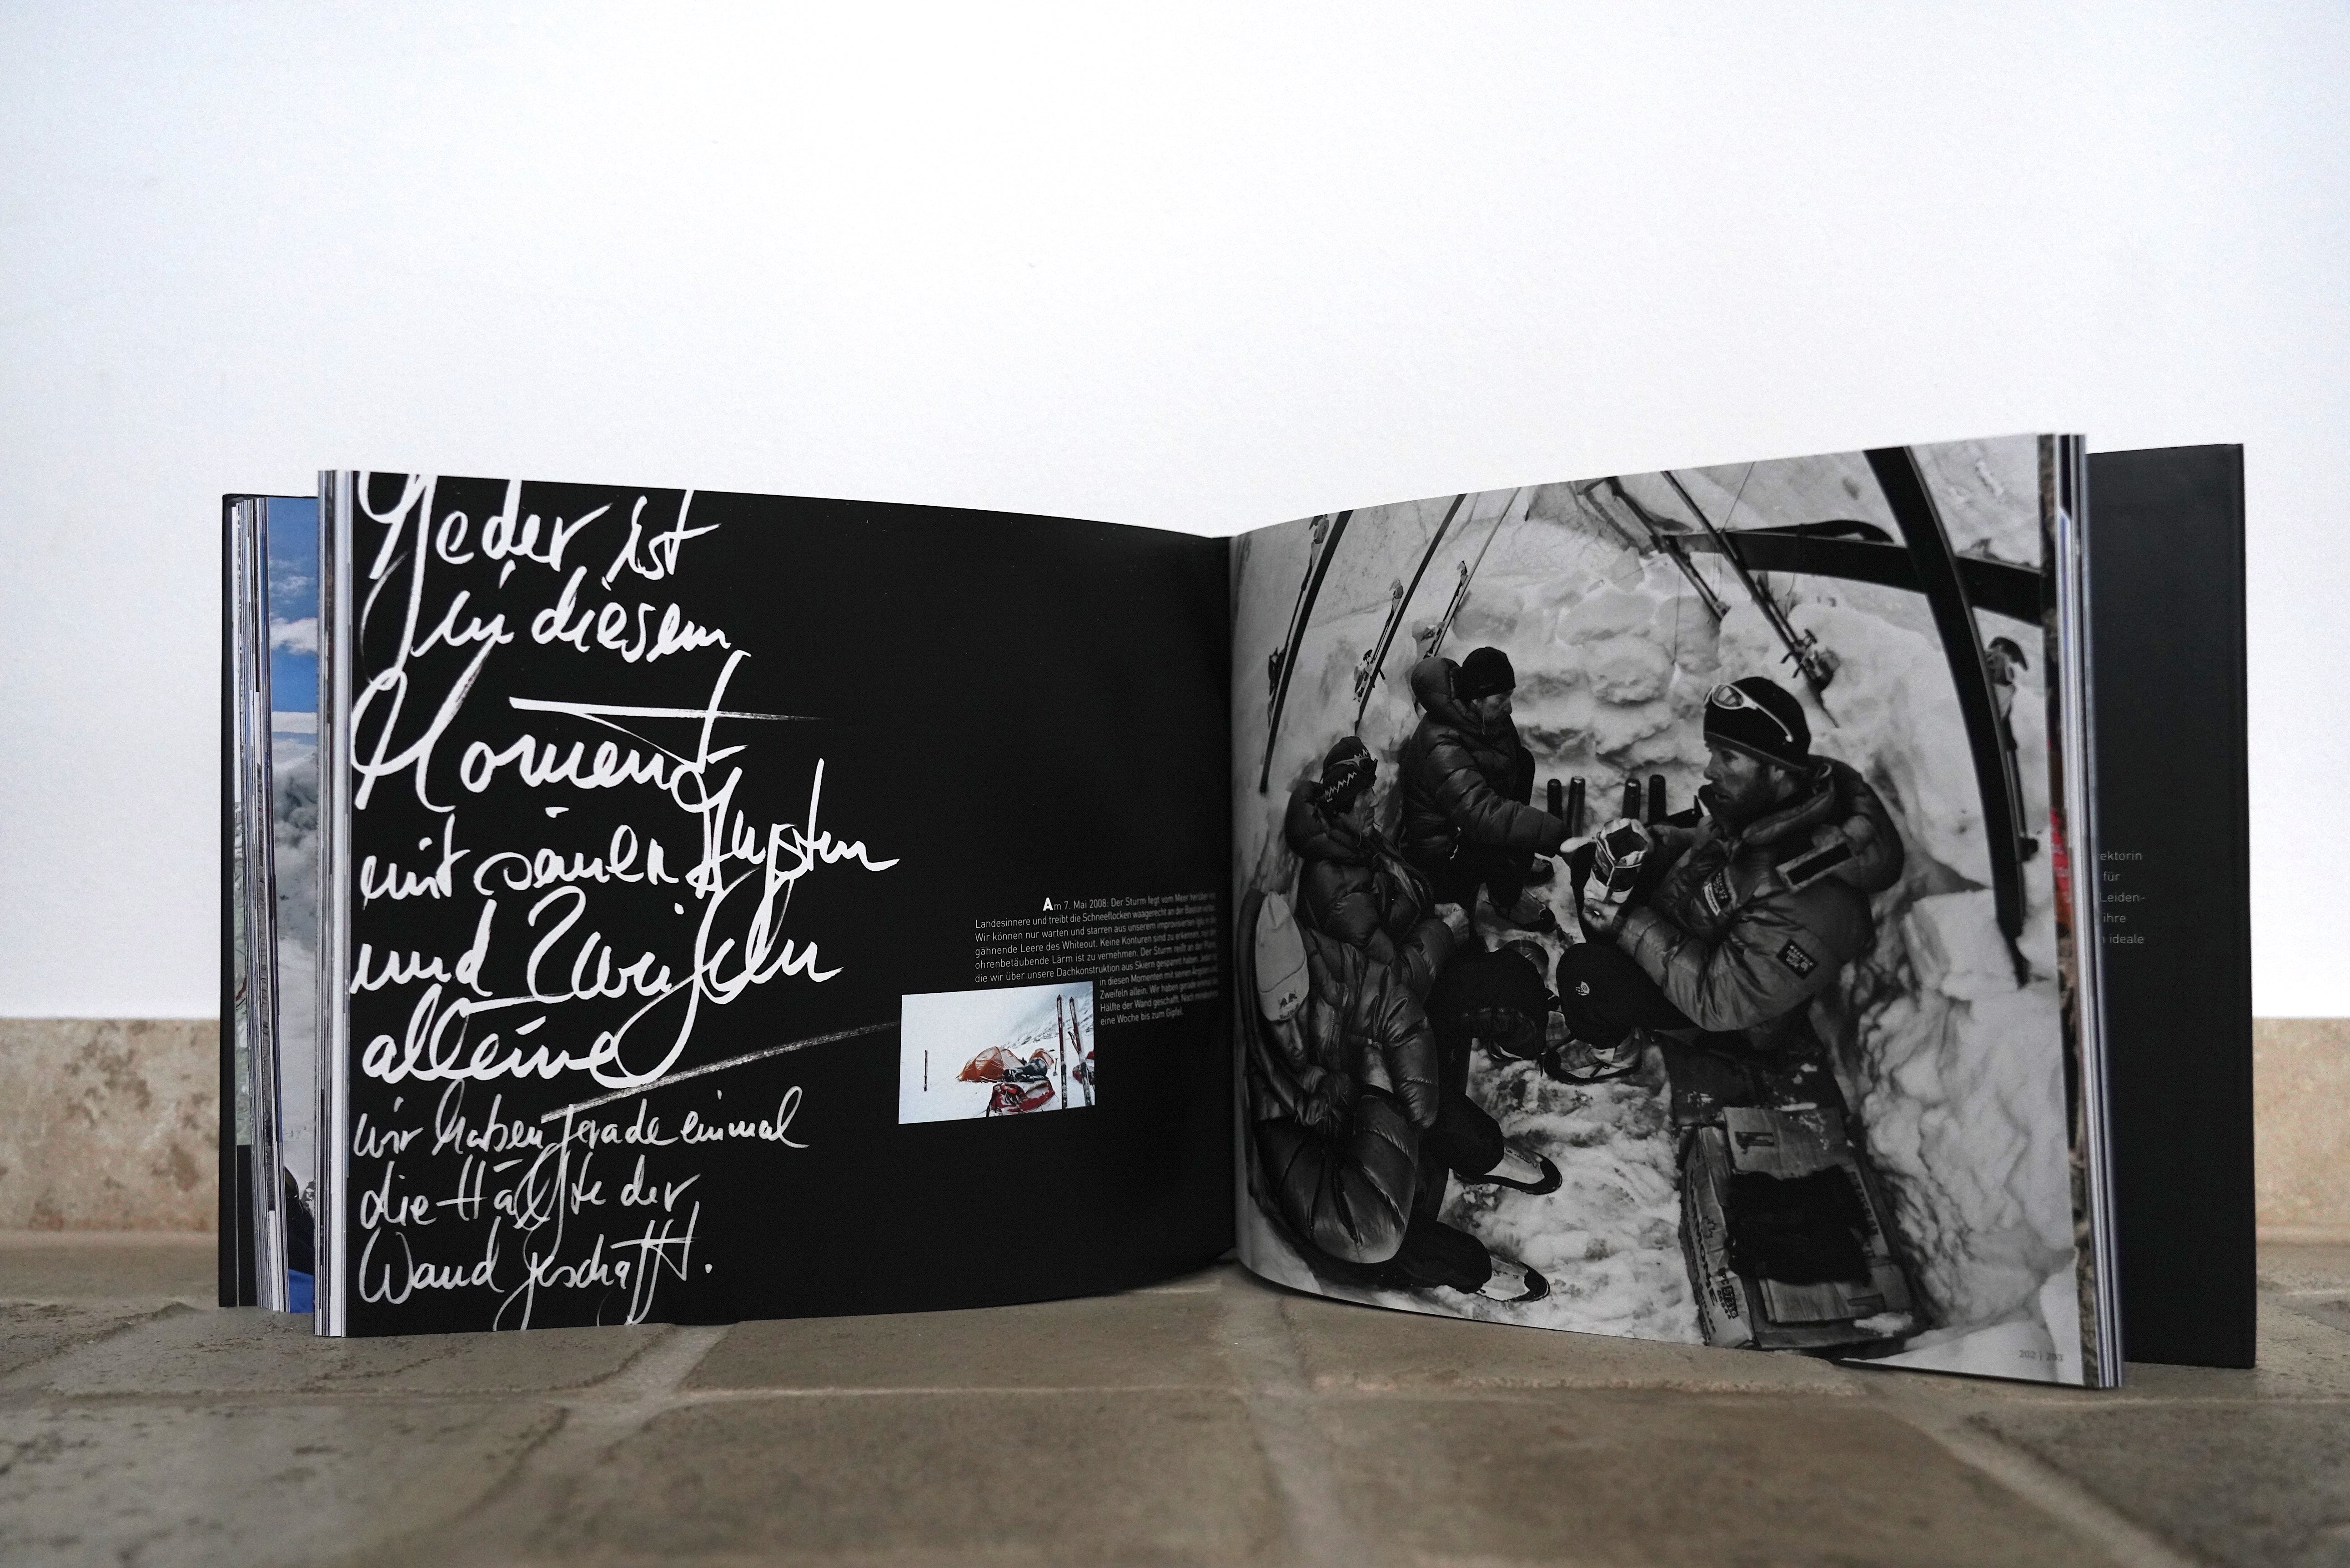 Jeder ist
in diesem
Moment
mit seinen Ängsten
und Zweifeln
alleine
wir haben gerade einmal
die Hälfte der
Wand geschafft.
Am 7. Mai 2008: Der Sturm fegt vom Meer herüber ins
Landesinnere und treibt die Schneeflocken waagerecht an der Bastion vorbei.
Wir können nur warten und starren aus unserem improvisierten Iglu in die
gähnende Leere des Whiteout. Keine Konturen sind zu erkennen, nur der
ohrenbetäubende Lärm ist zu vernehmen. Der Sturm reißt an der Plane,
die wir über unsere Dachkonstruktion aus Skiern gespannt haben. Jeder ist
in diesen Momenten mit seinen Ängsten und
Zweifeln allein. Wir haben gerade einmal die
Hälfte der Wand geschafft. Noch mindestens
eine Woche bis zum Gipfel.
202 | 203
ektorin
für
Leiden-
ihre
ideale